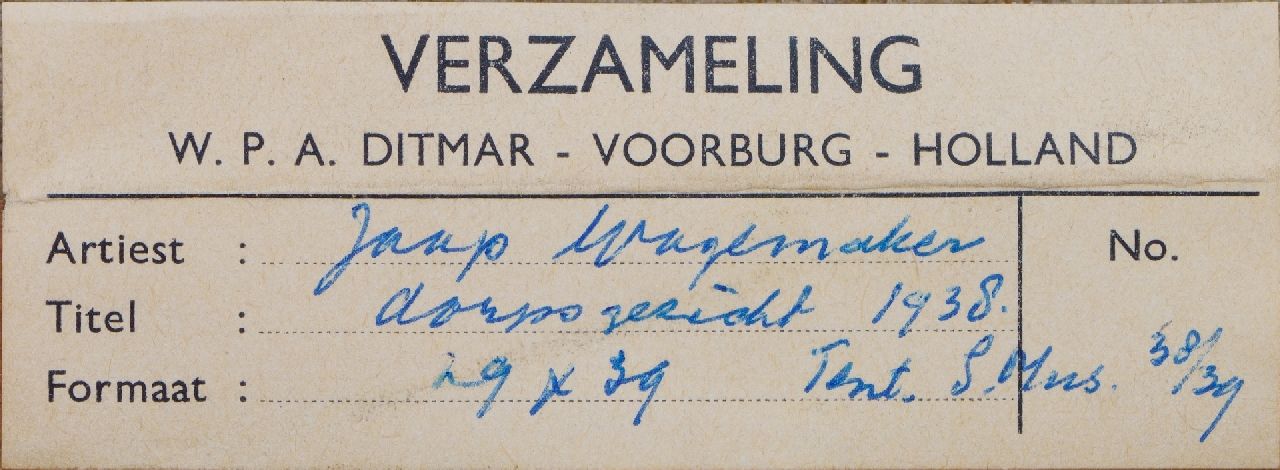 VERZAMELING
W. P. A. DITMAR - VOORBURG - HOLLAND
Artiest : Jaap Wagemaker No.
Titel : dorpsgezicht 1938.
Formaat : 29 x 39 Tent. S. Mus. 38/39